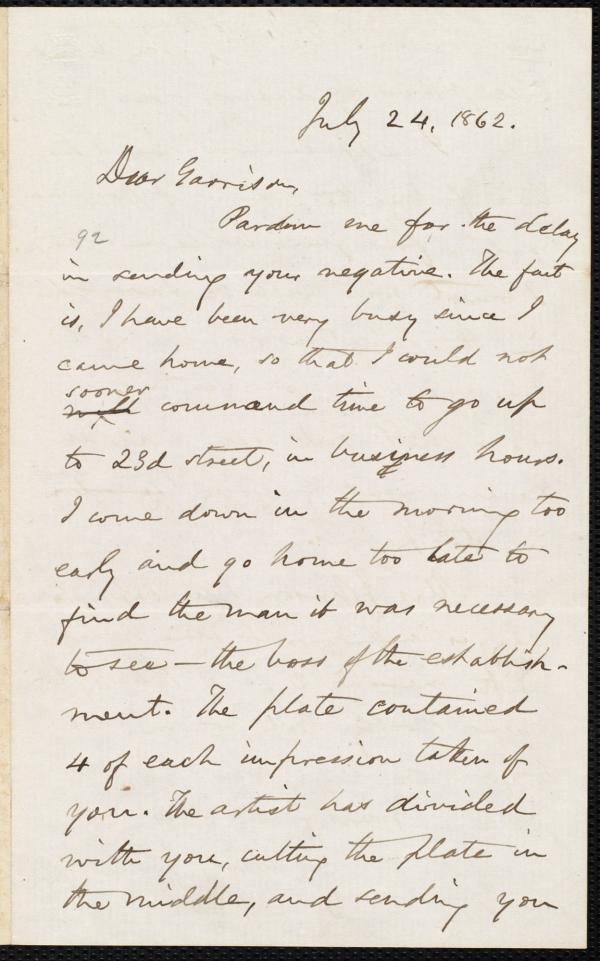 July 24, 1862.
Dear Garrison,
Pardon me for the delay
92
in sending your negative. The fact
is, I have been very busy since I
came home, so that I could not
sooner
command time to go up
to 23d street, in business hours.
I come down in the morning too
early and go home too late to
find the man it was necessary
to see — the boss of the establish-
ment. The plate contained
4 of each impression taken of
you. The artist has divided
with you, cutting the plate in
the middle, and sending you